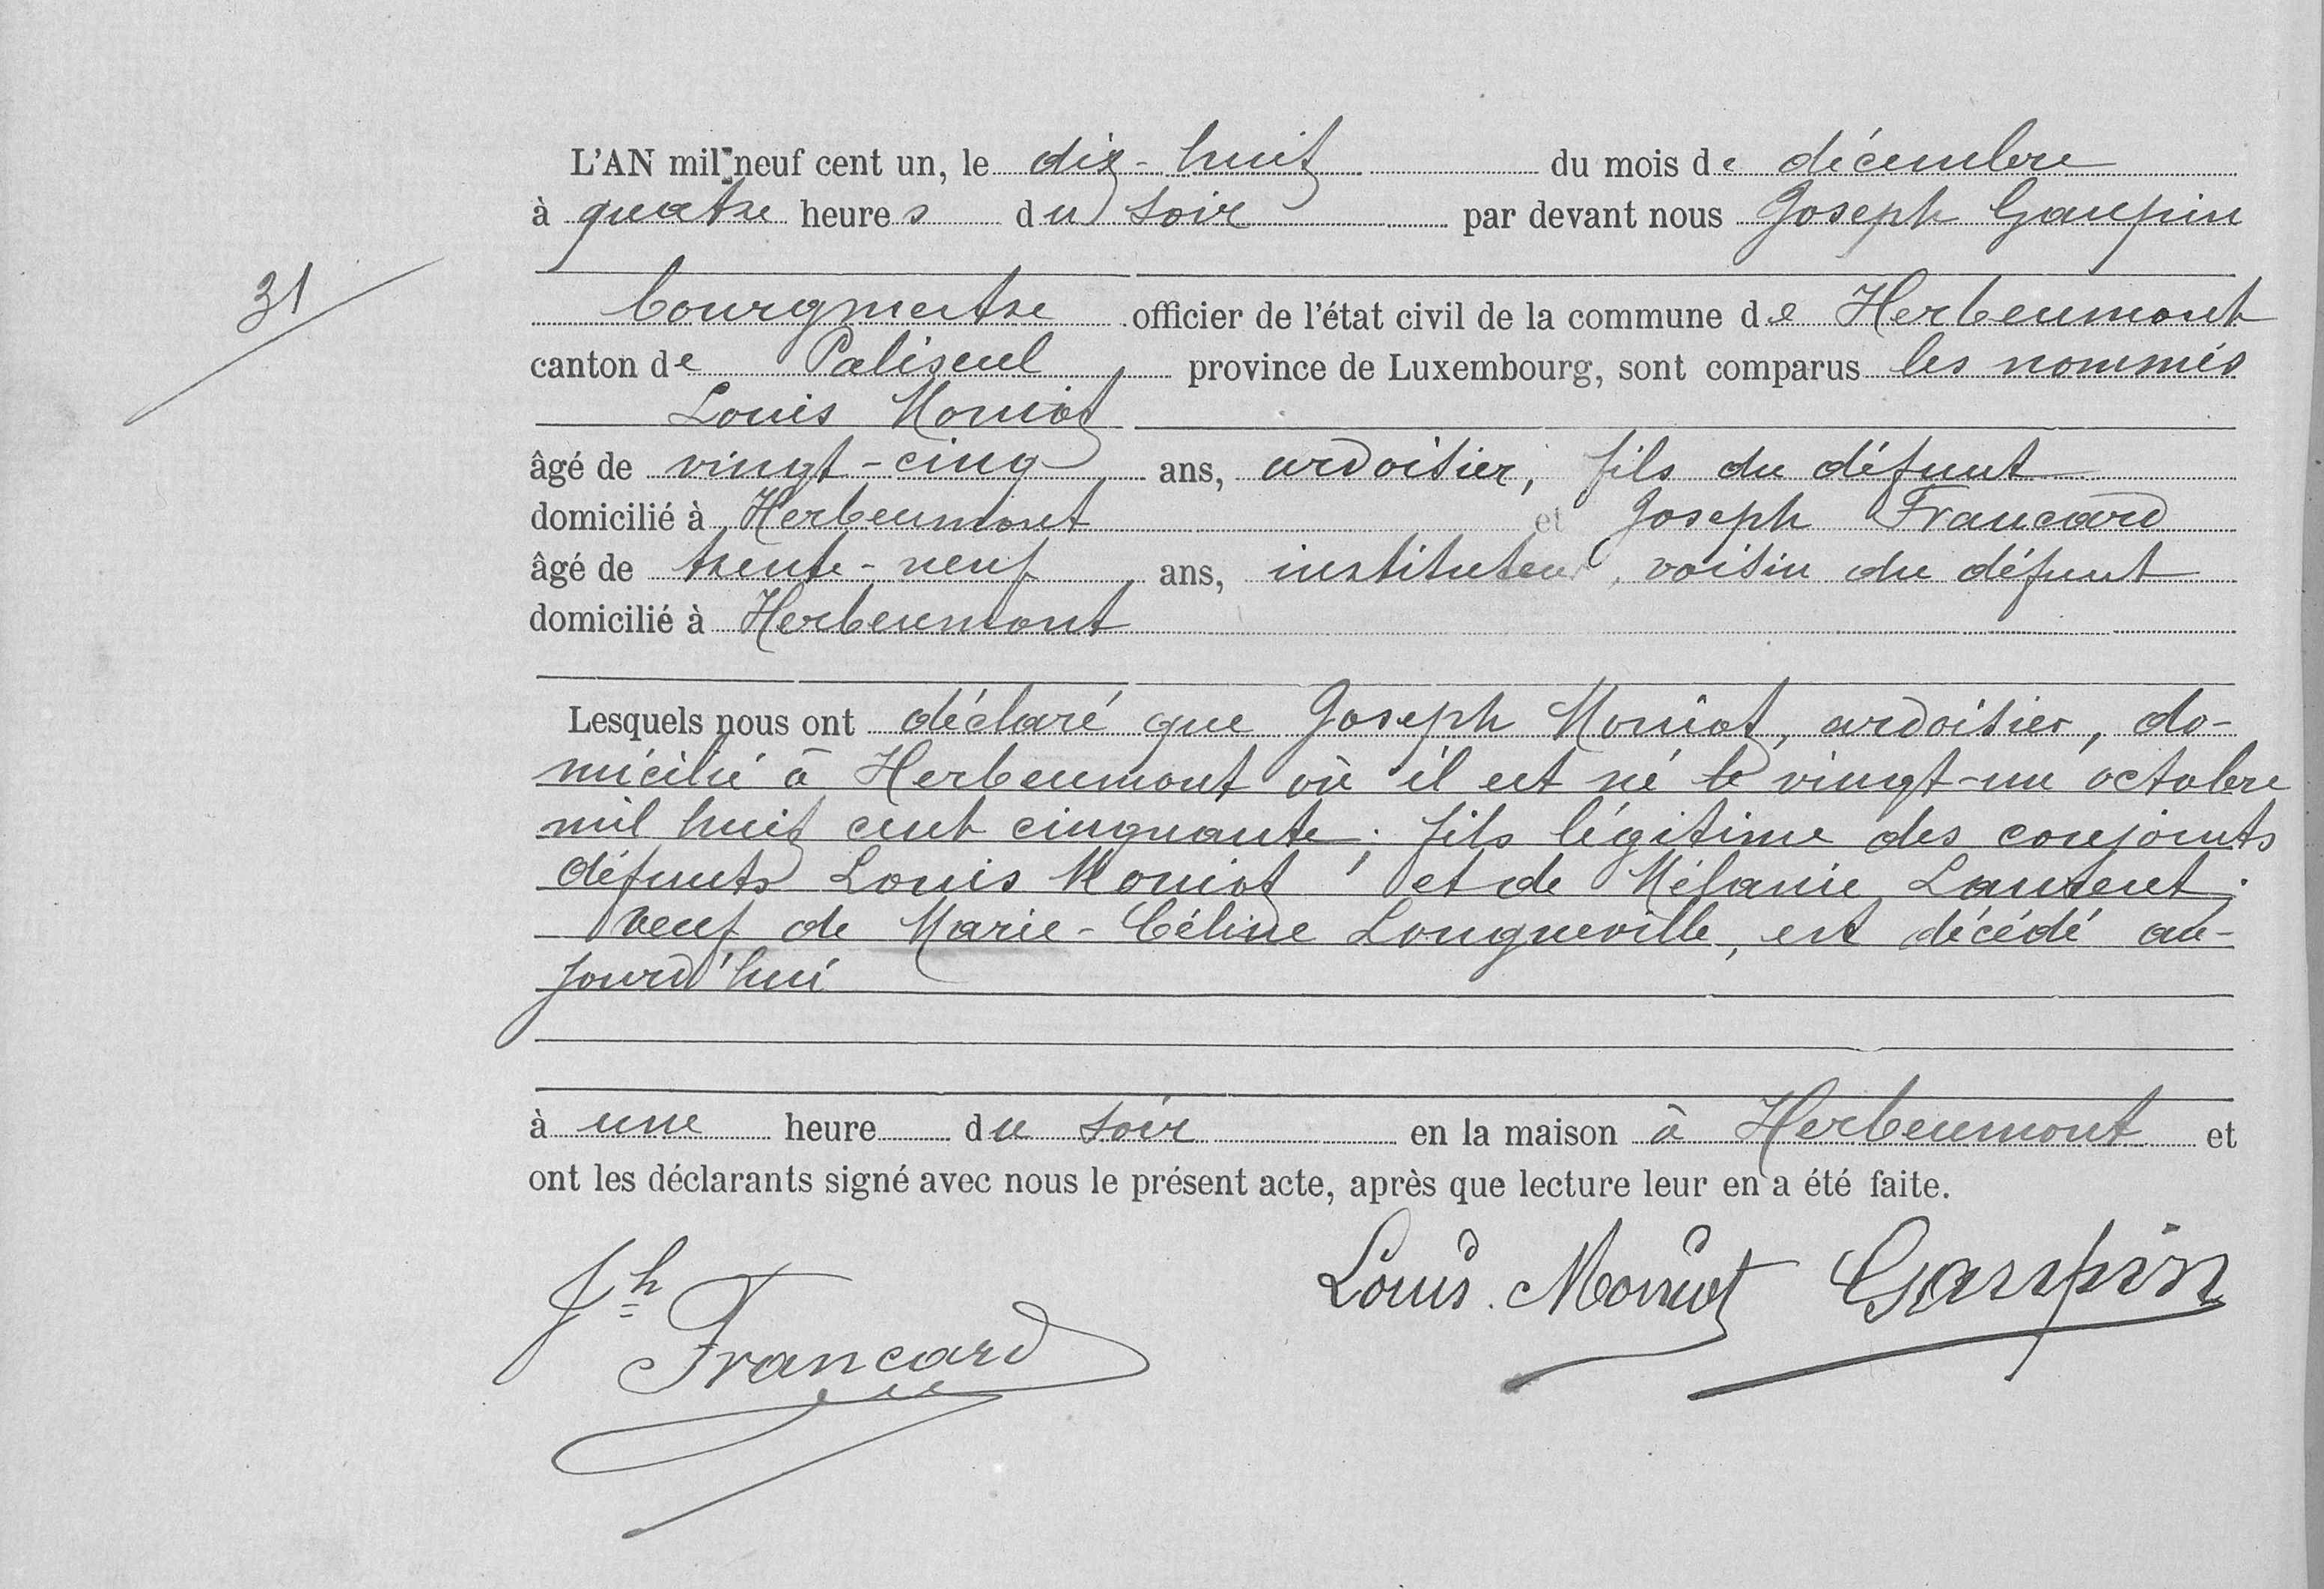 L'AN mil neuf cent un, le dix-huit du mois de décembre
à quatre heures du soir par devant nous Joseph Gaupin
31
bourgmestre officier de l'état civil de la commune de Herbeumont
canton de Paliseul province de Luxembourg, sont comparus les nommés
Louis Moniot
âgé de vingt-cinq ans, ardoisier, fils du défunt
domicilié à Herbeumont et Joseph Francard
âgé de trente-neuf ans, instituteur, voisin du défunt
domicilié à Herbeumont
Lesquels nous ont déclaré que Joseph Moniot, ardoisier, do-
micilié à Herbeumont où il est né le vingt-un octobre
mil huit cent cinquante; fils légitime des conjoints
défunts Louis Moniot et de Mélanie Lambert;
veuf de Marie-Céline Longueville, est décédé au-
jourd'hui
à une heure du soir en la maison à Herbeumont et
ont les déclarants signé avec nous le présent acte, après que lecture leur en a été faite.
Jh Francard
Louis Moniot Gaupin